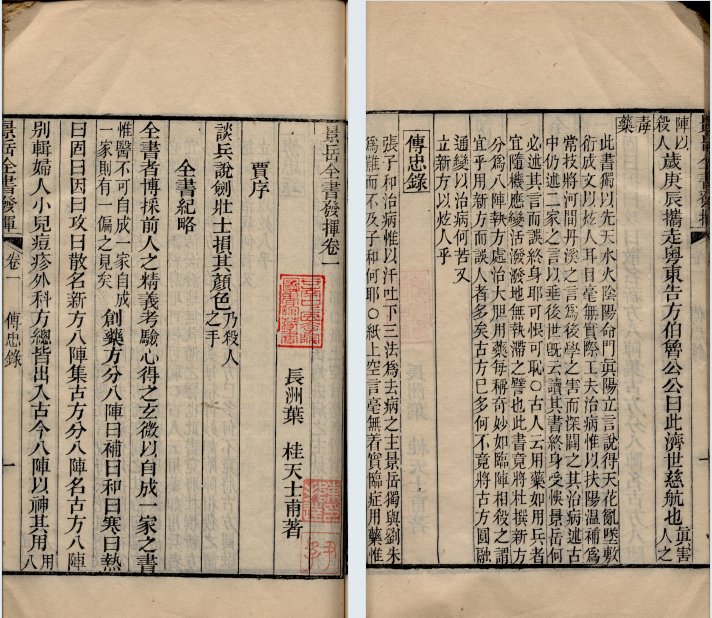 景岳全書發揮卷一
長洲葉 桂天士甫著
賈序
談兵說劍壯士損其顏色乃殺人之手
全書紀略
全書者博採前人之精義考驗心得之玄微以自成一家之書
惟醫不可自成一家自成一家則有一偏之見矣創藥方分八陣曰補曰和曰寒曰熱
曰固曰因曰攻曰散名新方八陣集古方分八陣名古方八陣
別輯婦人小兒痘疹外科方總皆出入古今八陣以神其用用八
景岳全書發揮 卷一 傳忠錄 一
陣以殺人歲庚辰攜走粵東告方伯魯公公曰此濟世慈航也眞害人之
毒藥
此書獨以先天水火陰陽命門眞陽立言說得天花亂墜敷
衍成文以炫人耳目毫無實際工夫治病惟以扶陽温補爲
常技將河間丹溪之言爲後學之害而深闢之其治病述古
中仍述二家之言以垂後世旣云讀其書終身受悞景岳何
必述其言而誤終身耶可恨可恥○古人云用藥如用兵者
宜隨機應變活潑潑地無執滯之譬也此書竟將杜撰新方
分爲八陣執方處治大胆用藥每稱奇妙如臨陣相殺之謂
宜乎用新方而談人者多矣古方已多何不竟將古方圓融
通變以治病何苦又
立新方以炫人乎
傳忠錄
張子和治病惟以汗吐下三法爲去病之主景岳獨與劉朱
爲難而不及子和何耶○紙上空言毫無若實臨症用藥惟